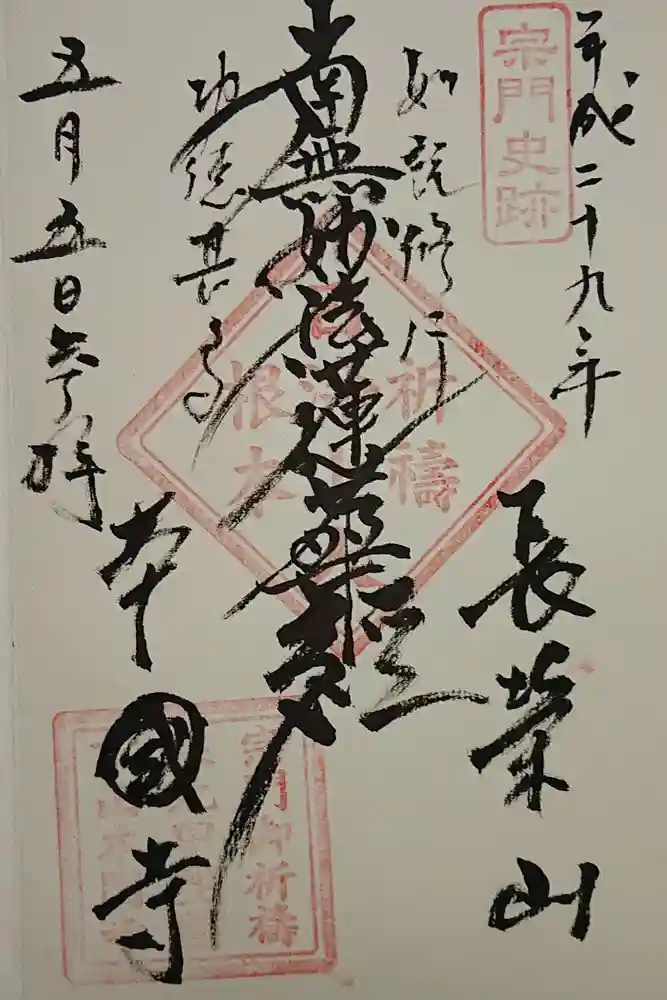 平成二十九年
宗門史跡
長榮山
如説修行
祈祷
南無妙法蓮華経
功徳甚多
根本
本國寺
五月五日参拝
宗門御祈祷